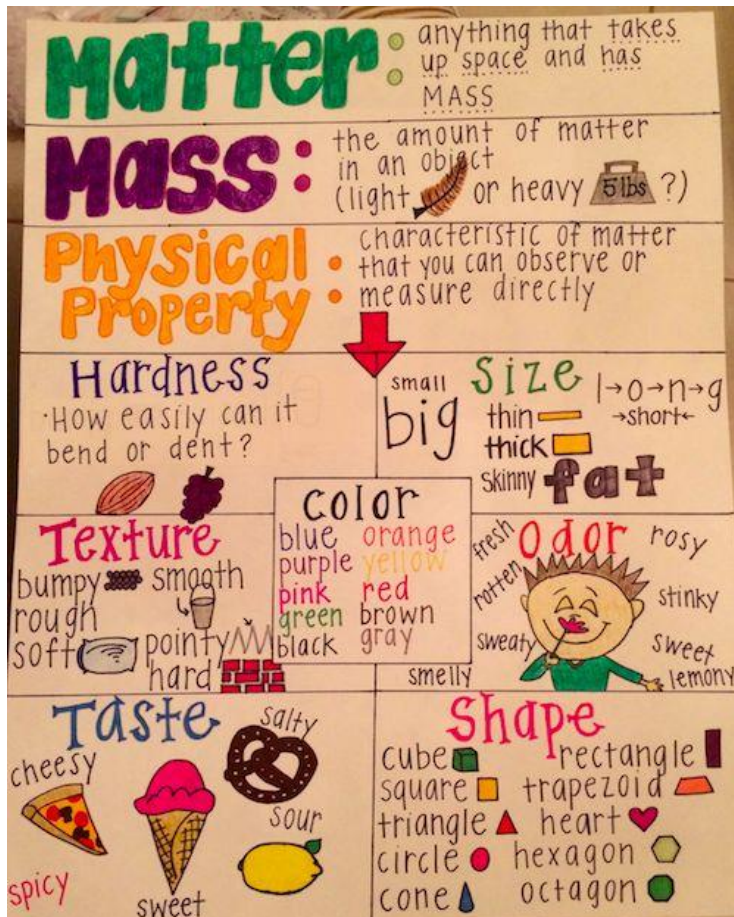 Matter:
anything that takes
up space and has
MASS
Mass:
the amount of matter
in an object
(light or heavy 5 lbs ?)
Physical
Property:
characteristic of matter
that you can observe or
measure directly
Hardness
·How easily can it
bend or dent?
Size
small
big
l→o→n→g
thin
→short←
thick
skinny fat
Color
blue orange
purple yellow
pink red
green brown
black gray
Texture
bumpy smooth
rough
soft pointy
hard
Odor
fresh
rosy
rotten
stinky
sweaty
sweet
smelly
lemony
Taste
salty
cheesy
sour
spicy
sweet
Shape
cube rectangle
square trapezoid
triangle heart
circle hexagon
cone octagon